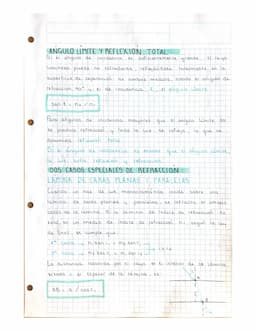 ÁNGULO LÍMITE Y REFLEXIÓN TOTAL
Si el ángulo de incidencia es suficientemente grande, el rayo
luminoso puede no refractarse, reflejándose totalmente en la
superficie de separación de ambos medios, siendo el ángulo de
refracción 90°, y el de incidencia l, el ángulo límite
sen l = n₂ / n₁
Para ángulos de incidencia mayores que el ángulo límite no
se produce refracción y toda la luz se refleja, lo que se
denomina reflexión total.
Si el ángulo de incidencia es menor que el ángulo límite,
hay reflexión y refracción.
DOS CASOS ESPECIALES DE REFRACCIÓN
LÁMINA DE CARAS PLANAS Y PARALELAS
Cuando un haz de luz monocromática incide sobre una
lámina de caras planas y paralelas, se refracta en ambas
caras de la lámina. Si la lámina de índice de refracción n₂
está en un medio de índice de refracción n₁, según la ley
de Snell, se cumple que:
1ª cara → n₁ sen i₁ = n₂ sen r₁
2ª cara → n₂ sen
La distancia recorrida por el rayo en el interior de la lámina
siendo el espesor de la lámina, es:
AB = / cos r₁